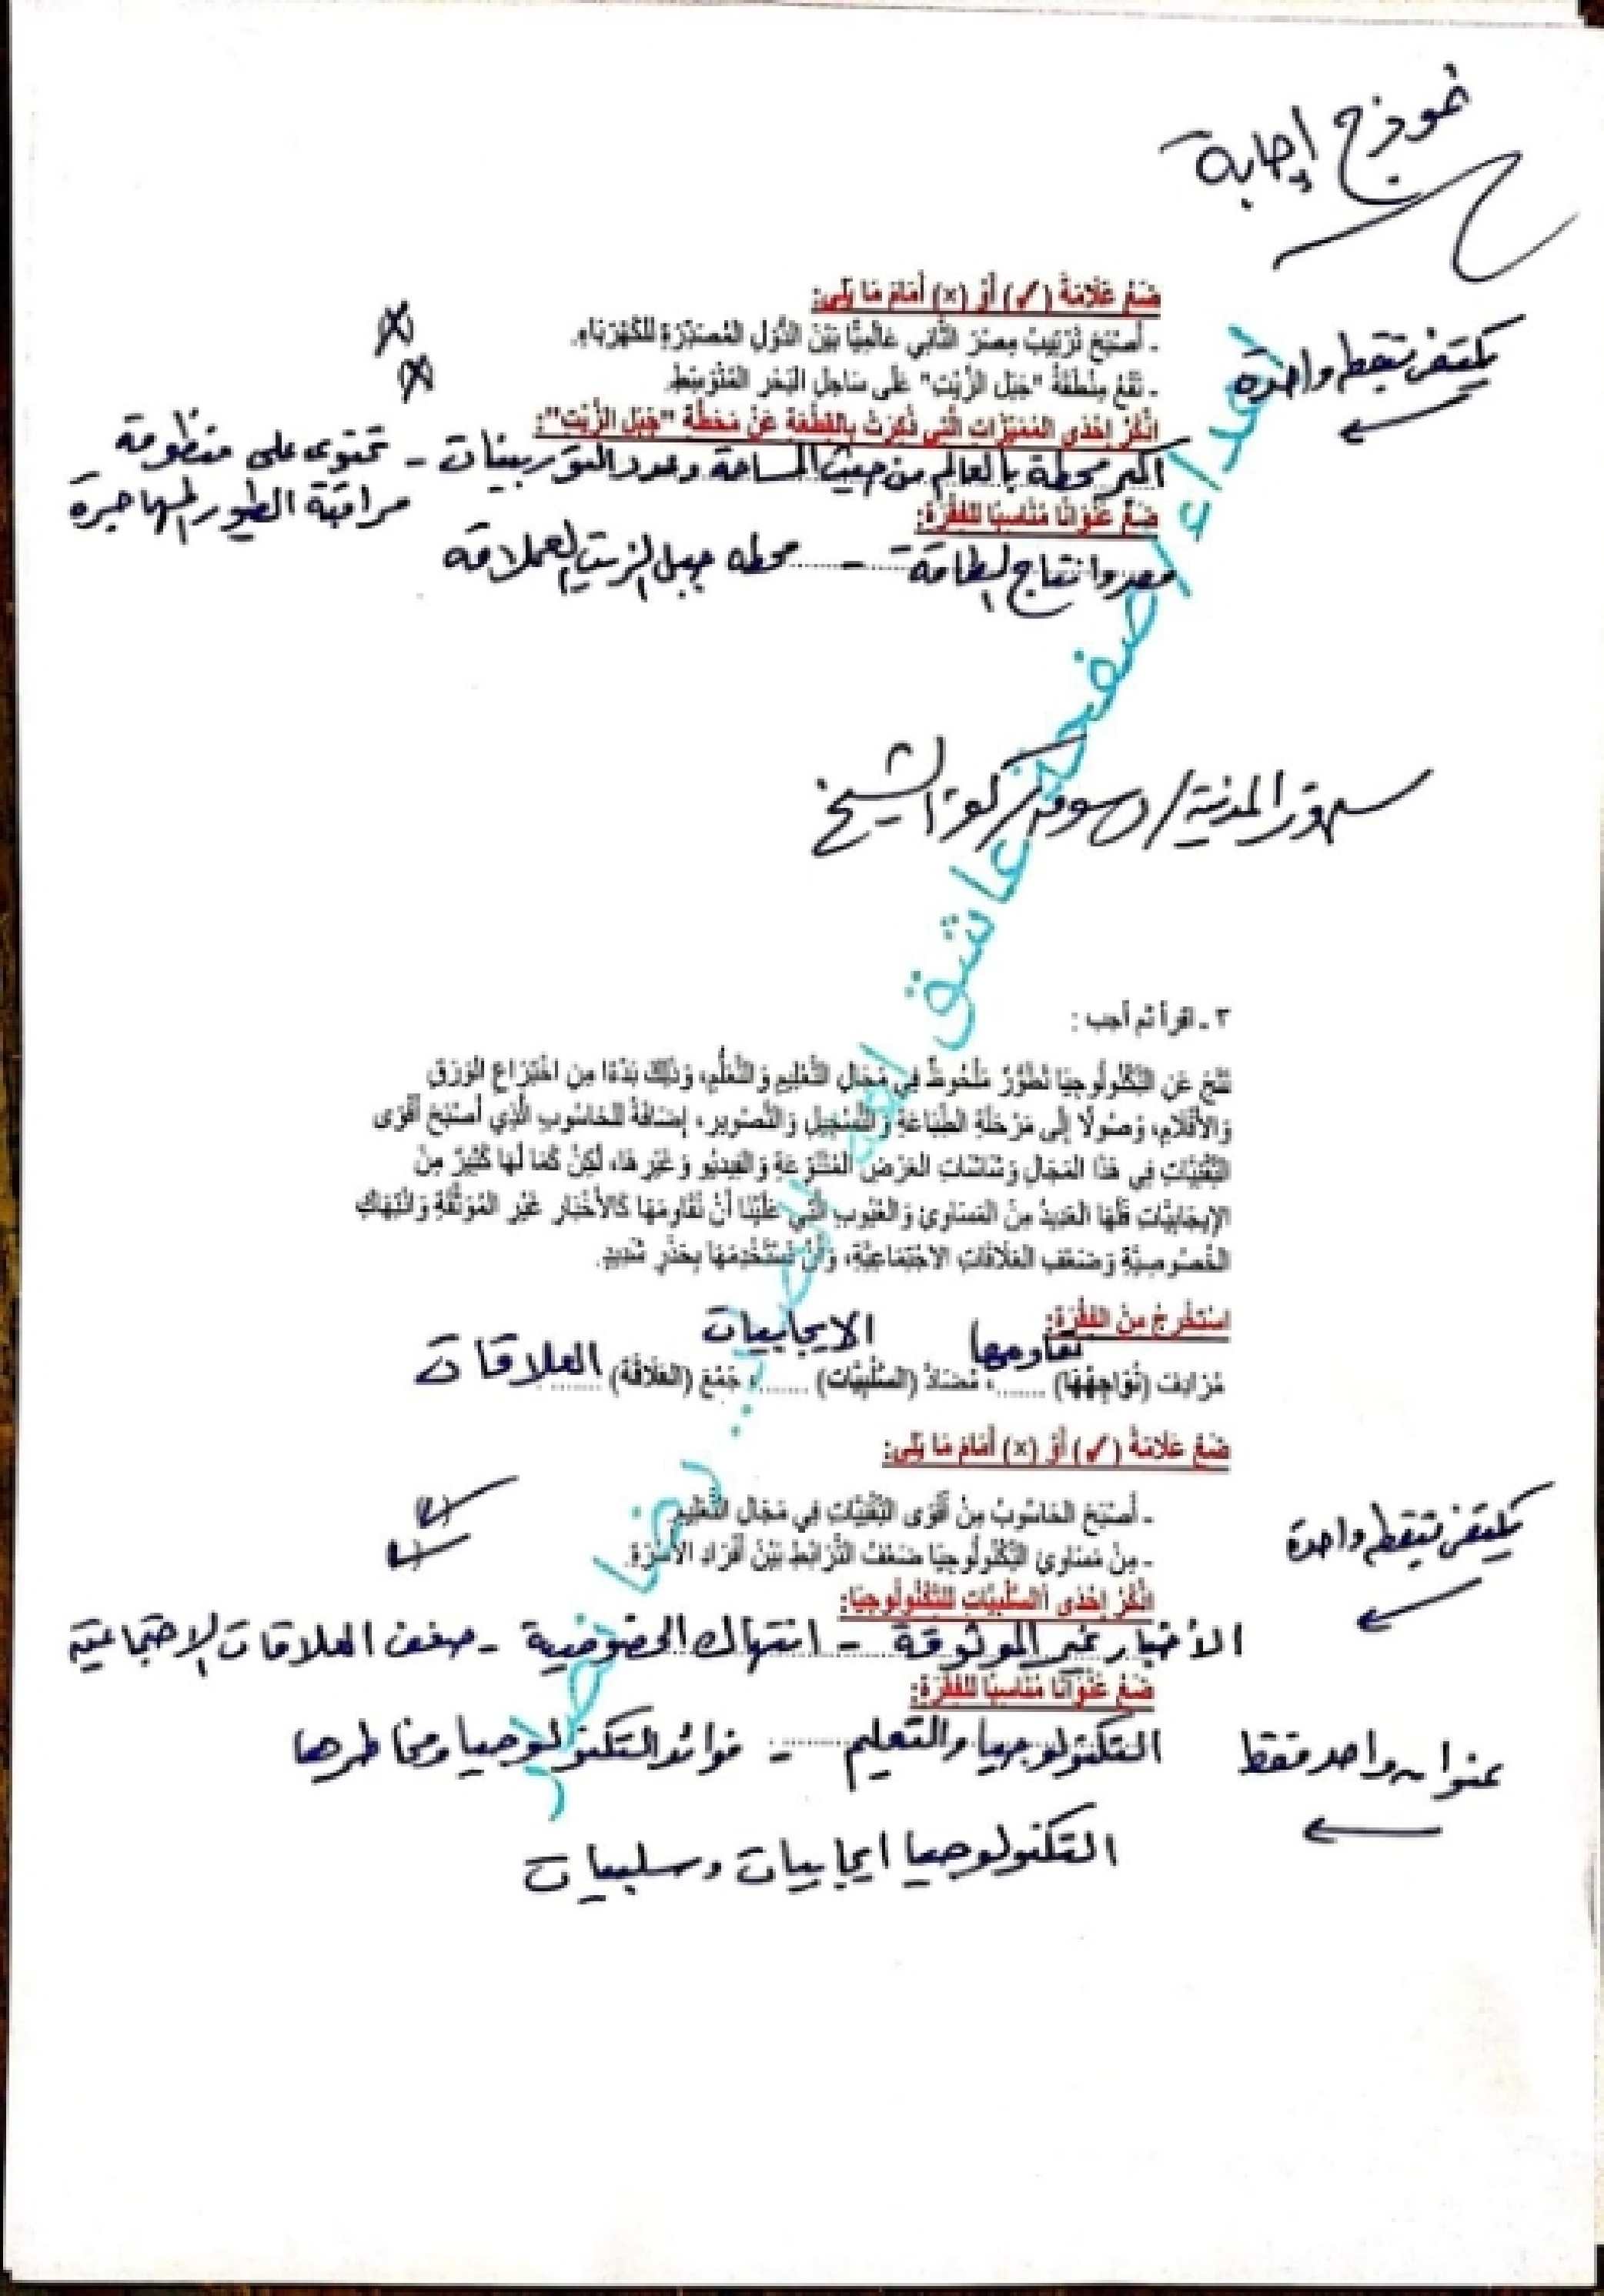 نموذج إجابة
ضَعْ عَلَامَةَ (✓) أَوْ (×) أَمَامَ مَا يَلِي:
ـ أَصْبَحَ تَرْتِيبُ مِصْرَ الثَّانِي عَالَمِيًّا بَيْنَ الدُّوَلِ المُصَدِّرَةِ لِلْكَهْرَبَاءِ. (×)
يكتفى بنقطة واحدة
ـ تَقَعُ مِنْطَقَةُ "جَبَل الزَّيْتِ" عَلَى سَاحِلِ البَحْرِ المُتَوَسِّطِ. (×)
اذْكُرْ إِحْدَى المُمَيِّزَاتِ الَّتِي ذُكِرَتْ بِالقِطْعَةِ عَنْ مَحَطَّةِ "جَبَل الزَّيْتِ":
أكبر محطة بالعالم من حيث المساحة وعدد التوربينات - تحتوى على منظومة
مراقبة الطيور المهاجرة
ضَعْ عُنْوَانًا مُنَاسِبًا لِلفِقْرَةِ:
مصر وانتاج الطاقة - محطه جبل الزيت العملاقه
سنهور المدينة / دسوق / كفر الشيخ
٣ ـ اقرأ ثم أجب :
نَتَجَ عَنِ التِّكْنُولُوجْيَا تَطَوُّرٌ مَلْحُوظٌ فِي مَجَالِ التَّعْلِيمِ وَالتَّعَلُّمِ، وَذَلِكَ بَدْءًا مِنِ اخْتِرَاعِ الوَرَقِ
وَالأَقْلَامِ، وُصُولًا إِلَى مَرْحَلَةِ الطِّبَاعَةِ وَالتَّسْجِيلِ وَالتَّصْوِيرِ، إِضَافَةً لِلحَاسُوبِ الَّذِي أَصْبَحَ أَقْوَى
التِّقْنِيَّاتِ فِي هَذَا المَجَالِ وَشَاشَاتِ العَرْضِ المُتَنَوِّعَةِ وَالفِيدْيُو وَغَيْرِهَا، لَكِنْ كَمَا لَهَا كَثِيرٌ مِنَ
الإِيجَابِيَّاتِ فَلَهَا العَدِيدُ مِنَ المَسَاوِئِ وَالعُيُوبِ الَّتِي عَلَيْنَا أَنْ نُقَاوِمَهَا كَالأَخْبَارِ غَيْرِ المُوَثَّقَةِ وَانْتِهَاكِ
الخُصُوصِيَّةِ وَضَعْفِ العَلَاقَاتِ الاجْتِمَاعِيَّةِ، وَأَنْ نَسْتَخْدِمَهَا بِحَذَرٍ شَدِيدٍ.
اسْتَخْرِجْ مِنَ الفِقْرَةِ:
مُرَادِفَ (نُوَاجِهُهَا) نقاومها، مُضَادَّ (السَّلْبِيَّات) الايجابيات، جَمْعَ (العَلَاقَة) العلاقات
ضَعْ عَلَامَةَ (✓) أَوْ (×) أَمَامَ مَا يَلِي:
ـ أَصْبَحَ الحَاسُوبُ مِنْ أَقْوَى التِّقْنِيَّاتِ فِي مَجَالِ التَّعْلِيمِ. (✓)
يكتفى بنقطة واحدة
ـ مِنْ مَسَاوِئِ التِّكْنُولُوجْيَا ضَعْفُ التَّرَابُطِ بَيْنَ أَفْرَادِ الأُسْرَةِ. (✓)
اذْكُرْ إِحْدَى السَّلْبِيَّاتِ لِلتِّكْنُولُوجْيَا:
الأخبار غير الموثوقة - انتهاك الخصوصية - ضعف العلاقات الاجتماعية
ضَعْ عُنْوَانًا مُنَاسِبًا لِلفِقْرَةِ:
التكنولوجيا والتعليم - فوائد التكنولوجيا ومخاطرها
عنوان واحد فقط
التكنولوجيا ايجابيات وسلبيات